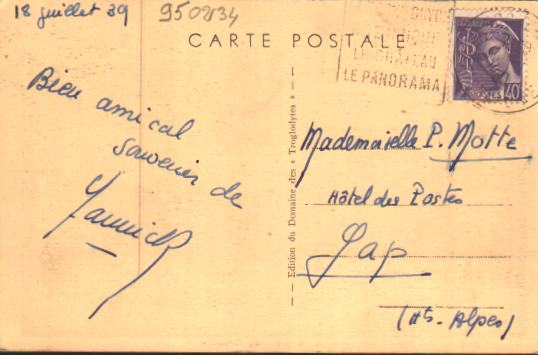 18 juillet 39
9502134
CARTE POSTALE
LE CHÂTEAU
LE PANORAMA
POSTES
40
Bien amical
souvenir de
Yannick
— Edition du Domaine des « Troglodytes » —
Mademoiselle P. Motte
Hôtel des Postes
Gap
(Htes-Alpes)